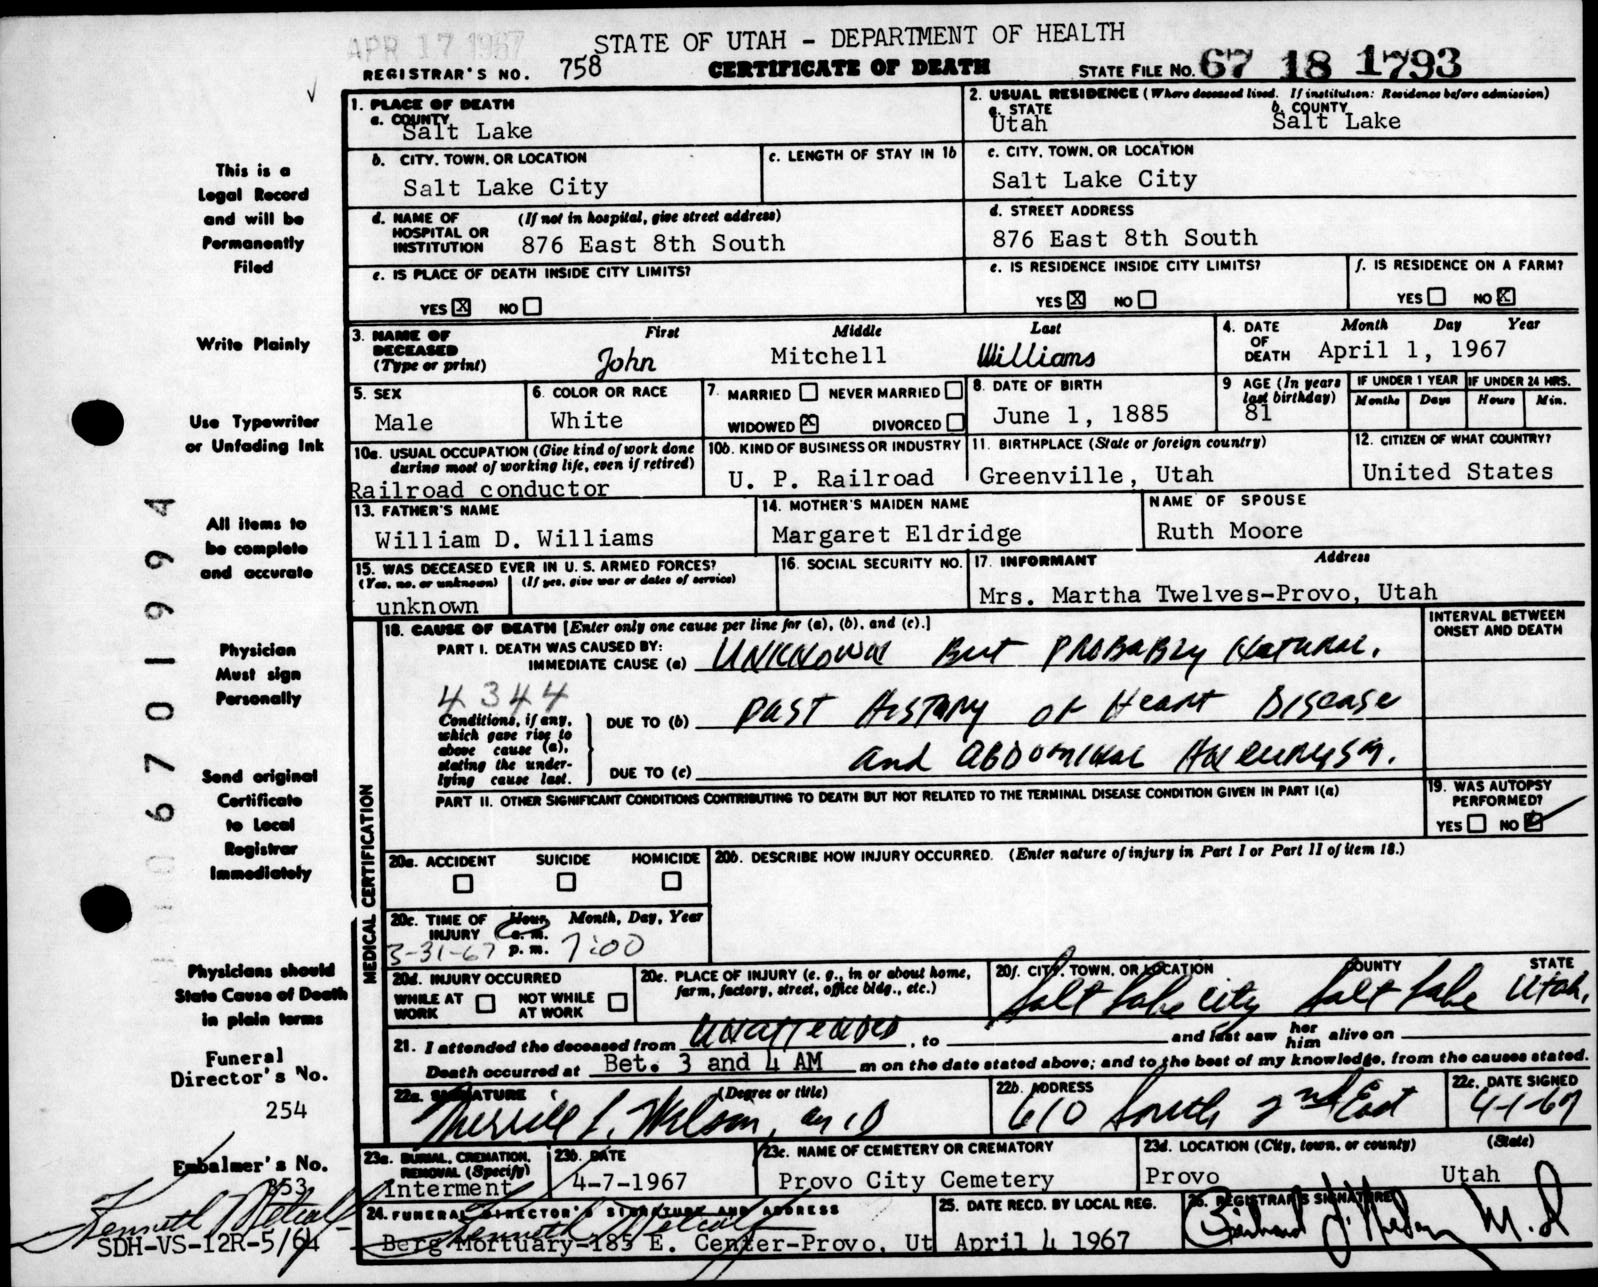 APR 17 1967
STATE OF UTAH - DEPARTMENT OF HEALTH
REGISTRAR'S NO. 758 CERTIFICATE OF DEATH STATE FILE NO. 67 18 1793
1. PLACE OF DEATH
a. COUNTY
Salt Lake
2. USUAL RESIDENCE (Where deceased lived. If institution: Residence before admission)
a. STATE b. COUNTY
Utah Salt Lake
b. CITY, TOWN, OR LOCATION
Salt Lake City
c. LENGTH OF STAY IN 1b
c. CITY, TOWN, OR LOCATION
Salt Lake City
d. NAME OF (If not in hospital, give street address)
HOSPITAL OR
INSTITUTION 876 East 8th South
d. STREET ADDRESS
876 East 8th South
e. IS PLACE OF DEATH INSIDE CITY LIMITS?
YES X NO
e. IS RESIDENCE INSIDE CITY LIMITS?
YES X NO
f. IS RESIDENCE ON A FARM?
YES NO X
3. NAME OF First Middle Last
DECEASED
(Type or print) John Mitchell Williams
4. DATE Month Day Year
OF
DEATH April 1, 1967
5. SEX
Male
6. COLOR OR RACE
White
7. MARRIED NEVER MARRIED
WIDOWED X DIVORCED
8. DATE OF BIRTH
June 1, 1885
9 AGE (In years
last birthday)
81
IF UNDER 1 YEAR IF UNDER 24 HRS.
Months Days Hours Min.
10a. USUAL OCCUPATION (Give kind of work done
during most of working life, even if retired)
Railroad conductor
10b. KIND OF BUSINESS OR INDUSTRY
U. P. Railroad
11. BIRTHPLACE (State or foreign country)
Greenville, Utah
12. CITIZEN OF WHAT COUNTRY?
United States
13. FATHER'S NAME
William D. Williams
14. MOTHER'S MAIDEN NAME
Margaret Eldridge
NAME OF SPOUSE
Ruth Moore
15. WAS DECEASED EVER IN U. S. ARMED FORCES?
(Yes, no, or unknown) (If yes, give war or dates of service)
unknown
16. SOCIAL SECURITY NO.
17. INFORMANT Address
Mrs. Martha Twelves-Provo, Utah
MEDICAL CERTIFICATION
18. CAUSE OF DEATH [Enter only one cause per line for (a), (b), and (c).]
INTERVAL BETWEEN
ONSET AND DEATH
PART I. DEATH WAS CAUSED BY:
IMMEDIATE CAUSE (a) UNKNOWN But PROBABLY NATURAL.
4344
Conditions, if any,
which gave rise to
above cause (a),
stating the under-
lying cause last.
DUE TO (b) PAST HISTORY OF Heart Disease
DUE TO (c) and ABDOMINAL Aneurysm.
PART II. OTHER SIGNIFICANT CONDITIONS CONTRIBUTING TO DEATH BUT NOT RELATED TO THE TERMINAL DISEASE CONDITION GIVEN IN PART I(a)
19. WAS AUTOPSY
PERFORMED?
YES NO
20a. ACCIDENT SUICIDE HOMICIDE
20b. DESCRIBE HOW INJURY OCCURRED. (Enter nature of injury in Part I or Part II of item 18.)
20c. TIME OF Hour Month, Day, Year
INJURY a. m.
3-31-67 p. m. 7:00
20d. INJURY OCCURRED
WHILE AT NOT WHILE
WORK AT WORK
20e. PLACE OF INJURY (e. g., in or about home,
farm, factory, street, office bldg., etc.)
20f. CITY, TOWN, OR LOCATION COUNTY STATE
Salt Lake City Salt Lake Utah.
21. I attended the deceased from Unattended, to and last saw her him alive on
Death occurred at Bet. 3 and 4 AM m on the date stated above; and to the best of my knowledge, from the causes stated.
22a. SIGNATURE (Degree or title)
Merrill L. Wilson, M D
22b. ADDRESS
610 South 2nd East
22c. DATE SIGNED
4-1-67
23a. BURIAL, CREMATION,
REMOVAL (Specify)
Interment
23b. DATE
4-7-1967
23c. NAME OF CEMETERY OR CREMATORY
Provo City Cemetery
23d. LOCATION (City, town, or county) (State)
Provo Utah
24. FUNERAL DIRECTOR'S SIGNATURE AND ADDRESS
Kenneth Metcalf
Berg Mortuary-185 E. Center-Provo, Ut
25. DATE RECD. BY LOCAL REG.
April 4 1967
26. REGISTRAR'S SIGNATURE
M.D
This is a
Legal Record
and will be
Permanently
Filed
Write Plainly
Use Typewriter
or Unfading Ink
All items to
be complete
and accurate
Physician
Must sign
Personally
Send original
Certificate
to Local
Registrar
Immediately
Physicians should
State Cause of Death
in plain terms
Funeral
Director's No.
254
Embalmer's No.
353
Kenneth Metcalf
SDH-VS-12R-5/64
00 6701994